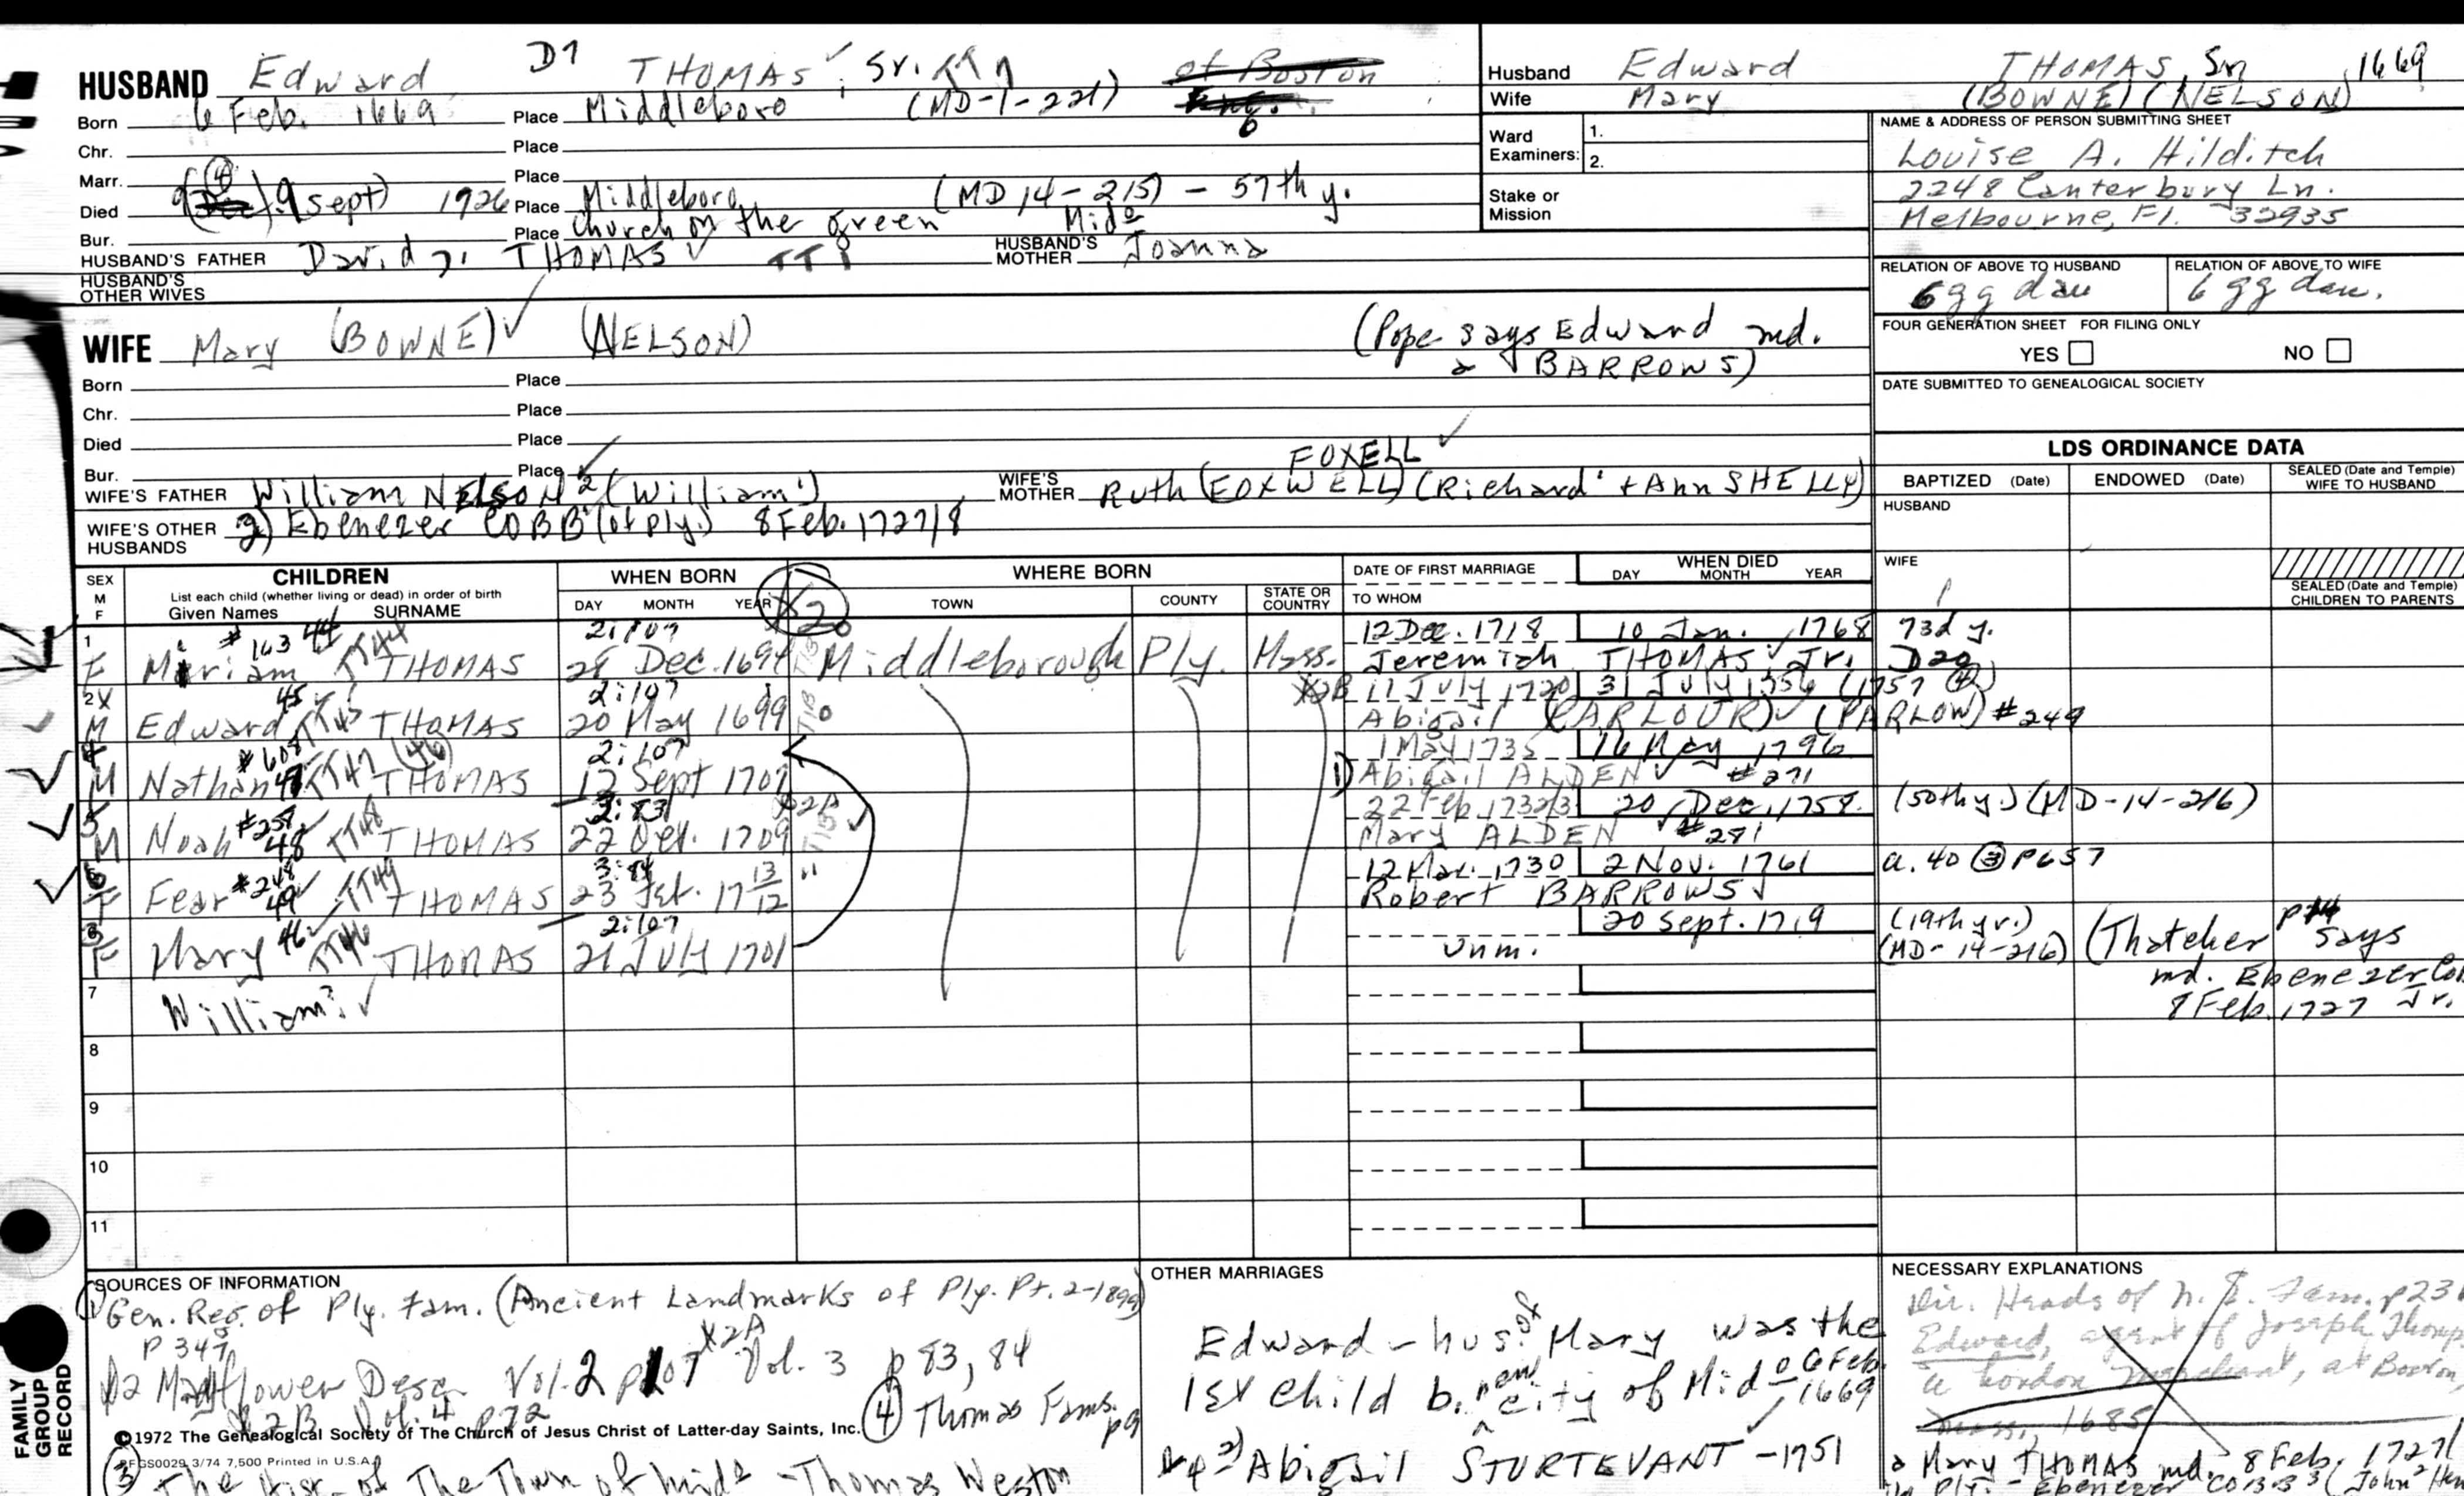 HUSBAND Edward D1 THOMAS, Sr. of Boston
Born 6 Feb. 1669 Place Middleboro (MD-1-221)
Chr. Place
Marr. Place
Died 9 (Dec) 9 (sept) 1926 Place Middleboro (MD 14-215) - 57th y.
Bur. Place Church on the green Mido
HUSBAND'S FATHER David THOMAS HUSBAND'S MOTHER Joanna
HUSBAND'S OTHER WIVES
WIFE Mary (BOWNE) (NELSON) (Pope says Edward md. a BARROWS)
Born Place
Chr. Place
Died Place
Bur. Place
FOXELL
WIFE'S FATHER William NELSON 2 (William 1) WIFE'S MOTHER Ruth (FOXWELL) (Richard + Ann SHELLY)
WIFE'S OTHER HUSBANDS 2) Ebenezer COBB (of Ply.) 8 Feb. 1727/8
Husband Edward THOMAS, Sr. 1669
Wife Mary (BOWNE) (NELSON)
Ward Examiners: 1.
2.
Stake or Mission
NAME & ADDRESS OF PERSON SUBMITTING SHEET
Louise A. Hilditch
2248 Canterbury Ln.
Melbourne, Fl. 32935
RELATION OF ABOVE TO HUSBAND RELATION OF ABOVE TO WIFE
6 gg dau 6 gg dau.
FOUR GENERATION SHEET FOR FILING ONLY
YES NO
DATE SUBMITTED TO GENEALOGICAL SOCIETY
LDS ORDINANCE DATA
BAPTIZED (Date) ENDOWED (Date) SEALED (Date and Temple) WIFE TO HUSBAND
HUSBAND
WIFE
SEALED (Date and Temple) CHILDREN TO PARENTS
SEX M F
CHILDREN
List each child (whether living or dead) in order of birth
Given Names SURNAME
WHEN BORN
DAY MONTH YEAR
WHERE BORN
TOWN COUNTY STATE OR COUNTRY
DATE OF FIRST MARRIAGE
TO WHOM
WHEN DIED
DAY MONTH YEAR
1 #163 44 TT44 2:107 12 Dec. 1718 10 Jan. 1768 73d y.
F Miriam THOMAS 28 Dec. 1694 Middleborough Ply. Mass. Jeremiah THOMAS Jr. D20
2 X 45 TT45 2:107 X2B 11 July 1720 31 July 1756 (1757 4)
M Edward THOMAS 20 May 1699 Abigail (PARLOUR) (PARLOW) #249
4 #608 TT47 (46) 2:107 1 May 1735 16 May 1796
M Nathan THOMAS 12 Sept 1707 1) Abigail ALDEN #271
5 #258 48 TT48 2:83 X2A 22 Feb. 1732/3 20 Dec. 1758 (50th y.) (MD-14-216)
M Noah THOMAS 22 Oct. 1709 Mary ALDEN #281
6 #248 49 TT49 3:84 12 Mar. 1730 2 Nov. 1761 a. 40 3 p657
F Fear THOMAS 23 Feb. 17 13/12 Robert BARROWS
3 46 TT46 2:107 20 Sept. 1719 (19th yr.)
F Mary THOMAS 21 July 1701 unm. (MD-14-216) (Thatcher says
md. Ebenezer
8 Feb. 1727 Jr.
7 William?
8
9
10
11
SOURCES OF INFORMATION
1) Gen. Reg. of Ply. Fam. (Ancient Landmarks of Ply. Pt. 2-1899)
p 347
X2 Mayflower Desc. Vol. 2 p107 X2A Vol. 3 p 83, 84
X2B Vol. 4 p72
4 Thomas Fams. p9
©1972 The Genealogical Society of The Church of Jesus Christ of Latter-day Saints, Inc.
PFGS0029 3/74 7,500 Printed in U.S.A.
3 The Hist. of The Town of Mido - Thomas Weston
FAMILY GROUP RECORD
OTHER MARRIAGES
Edward - hus. of Mary was the
1st child b. new city of Mido 6 Feb. 1669
#4 2) Abigail STURTEVANT - 1751
NECESSARY EXPLANATIONS
Dir. Heads of N. E. Fam. p23
Edward, agent of Joseph
a London Merchant, at Boston,
Mass., 1685
a Mary THOMAS md. 8 Feb. 1727/
Ply. - Ebenezer COBB 3 (John 2